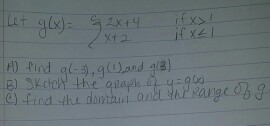 Let g(x) = { 2x+4 if x>1
x+2 if x≤1
A) find g(-3), g(1) and g(3)
B) Sketch the graph of y=g(x)
C) find the domain and the range of g